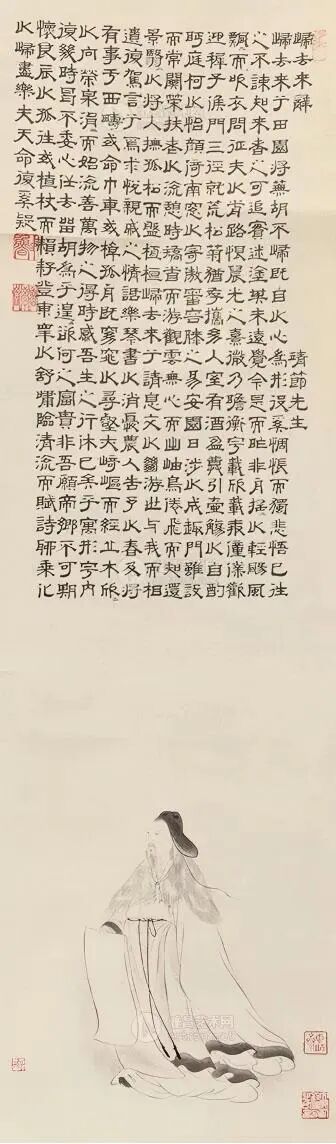 歸去來辭
靖節先生
歸去來兮田園將蕪胡不歸既自以心爲形役奚惆悵而獨悲悟已往
之不諫知來者之可追實迷塗其未遠覺今是而昨非舟搖以輕颺風
飄而吹衣問征夫以前路恨晨光之熹微乃瞻衡宇載欣載奔僮僕歡
迎稚子候門三徑就荒松菊猶存攜幼入室有酒盈樽引壺觴以自酌
眄庭柯以怡顏倚南窗以寄傲審容膝之易安園日涉以成趣門雖設
而常關策扶老以流憩時矯首而游觀雲無心而出岫鳥倦飛而知還
景翳以將入撫孤松而盤桓歸去來兮請息交以絕游世與我而相
遺復駕言兮焉求悅親戚之情話樂琴書以消憂農人告予以春及將
有事于西疇或命巾車或棹孤舟既窈窕以尋壑亦崎嶇而經丘木欣
以向榮泉涓而始流善萬物之得時感吾生之行休已矣乎寓形宇內
復幾時曷不委心任去留胡爲乎遑欲何之富貴非吾願帝鄉不可期
懷良辰以孤往或植杖而耘耔登東皋以舒嘯臨清流而賦詩聊乘化
以歸盡樂夫天命復奚疑